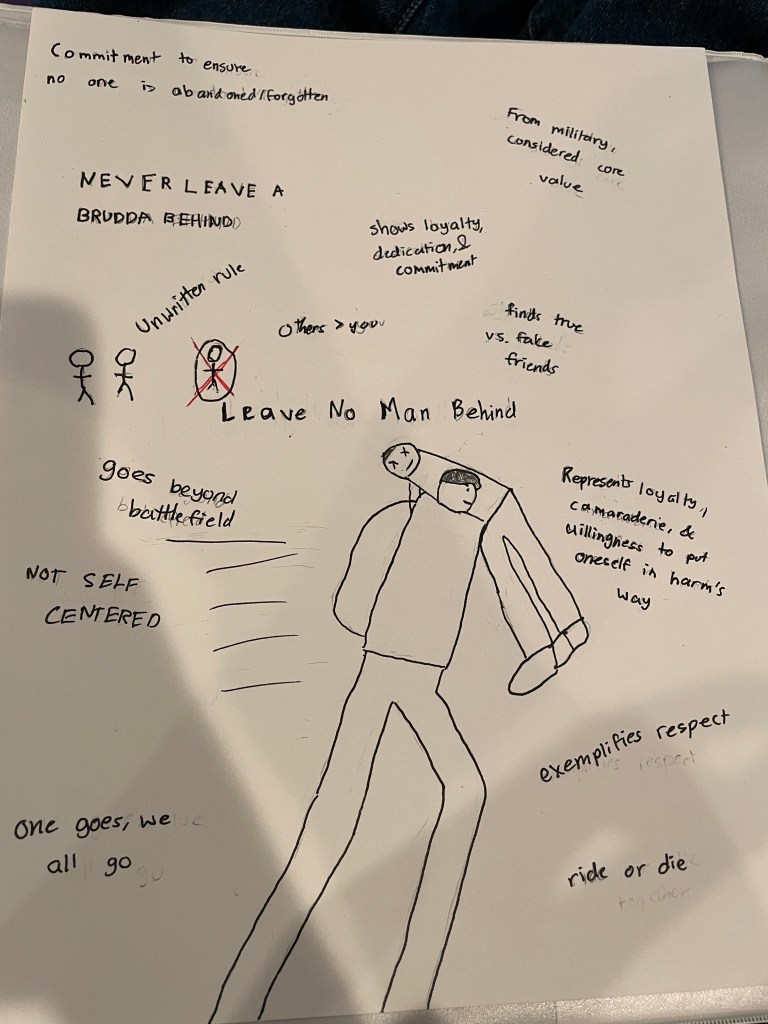 Commitment to ensure
no one is abandoned/forgotten
From military,
considered core
value
NEVER LEAVE A
BRUDDA BEHIND
shows loyalty,
dedication, &
commitment
Unwritten rule
Others > you
finds true
vs. fake
friends
Leave No Man Behind
goes beyond
battlefield
Represents loyalty,
camaraderie, &
willingness to put
oneself in harm's
way
NOT SELF
CENTERED
exemplifies respect
One goes, we
all go
ride or die
together